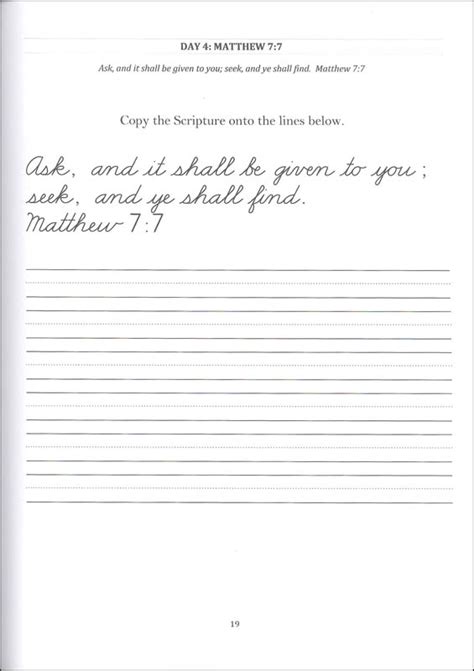 DAY 4: MATTHEW 7:7
Ask, and it shall be given to you; seek, and ye shall find. Matthew 7:7
Copy the Scripture onto the lines below.
Ask, and it shall be given to you ;
seek, and ye shall find.
Matthew 7:7
19